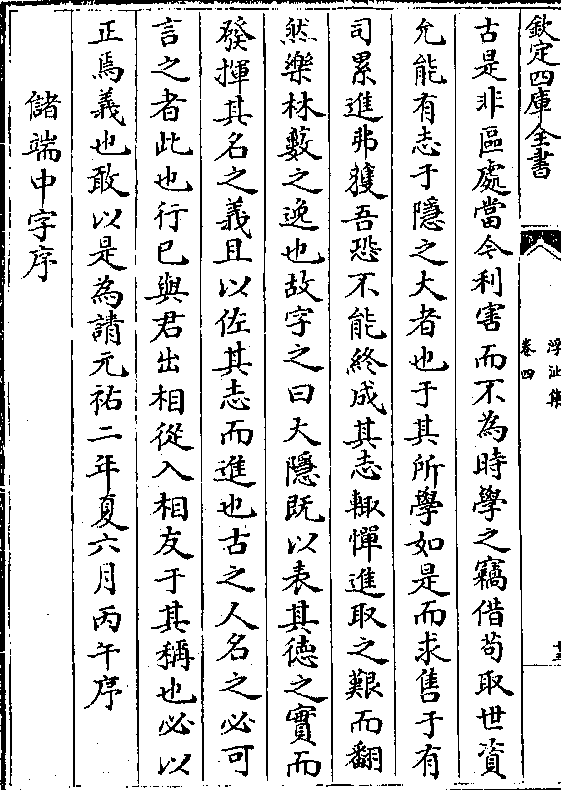 欽定四庫全書
浮沚集
卷四
十三
古是非區處當今利害而不為時學之竊借苟取世資
允能有志于隱之大者也于其所學如是而求售于有
司累進弗獲吾恐不能終成其志輒憚進取之艱而翻
然樂林藪之逸也故字之曰大隱既以表其德之實而
發揮其名之義且以佐其志而進也古之人名之必可
言之者此也行已與君出相從入相友于其稱也必以
正焉義也敢以是為請元祐二年夏六月丙午序
儲端中字序